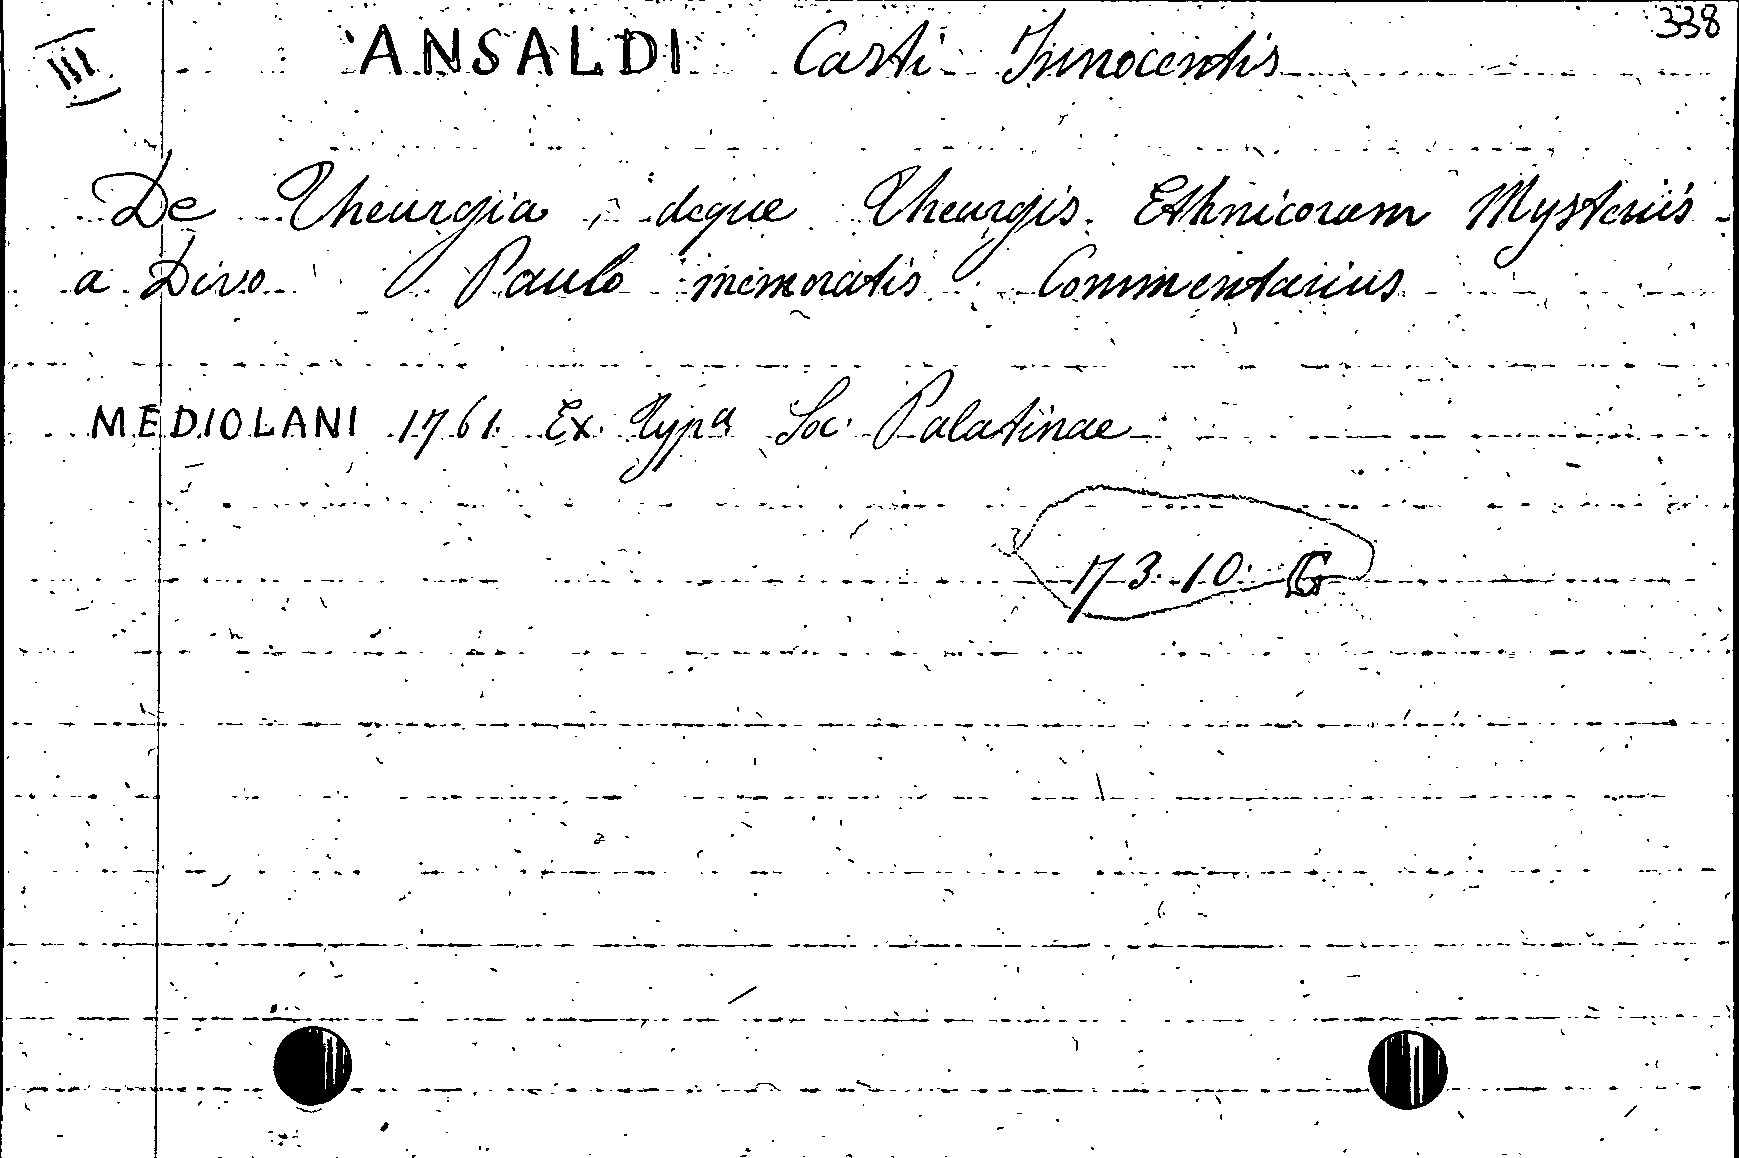 338
III ANSALDI Casti Innocentis
De Theurgia, deque Theurgis Ethnicorum Mysteriis
a Divo Paulo memoratis Commentarius
MEDIOLANI 1761. Ex. Typa Soc. Palatinae
173.10. G